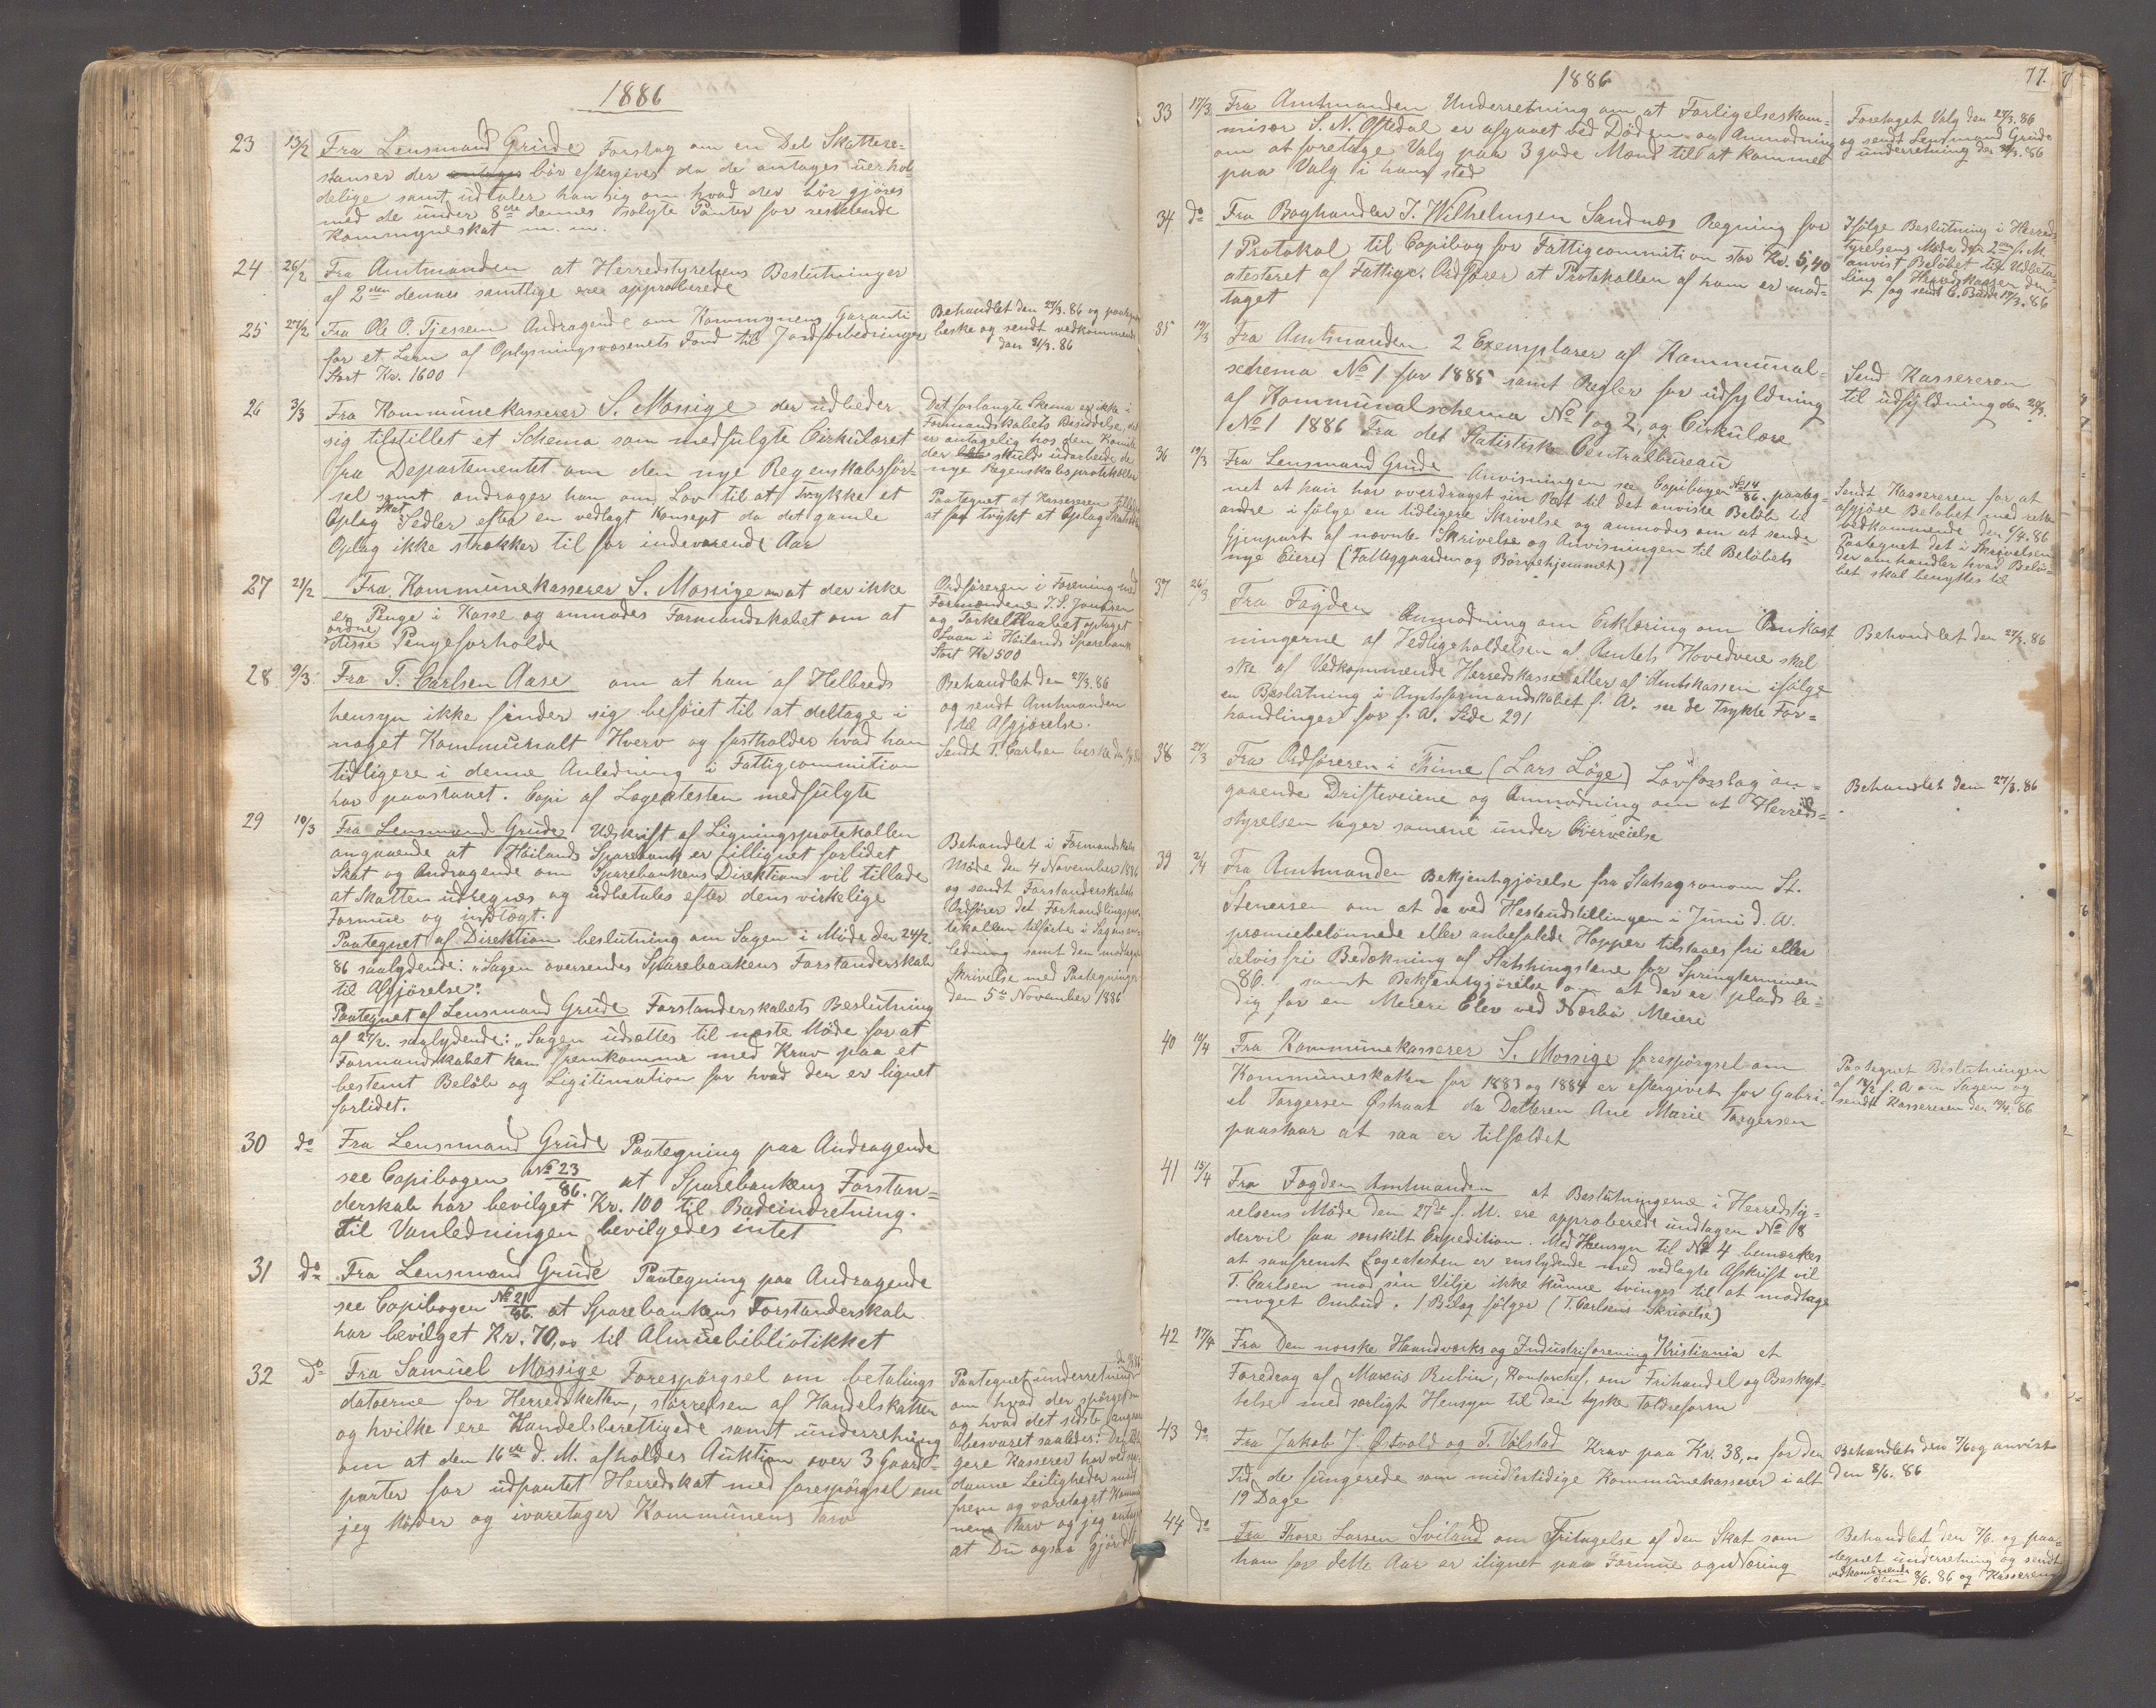 1886
23 13/2 Fra Lensmand Grude Forslag om en Del Skattere=
stanser der bör eftergives da de antages uerhol=
delige samt udtaler han sig om hvad der bör gjöres
med de under 8de dennes solgte Panter for resterende
Kommuneskat m. m.
24 26/2 Fra Amtmanden at Herredstyrelsens Beslutninger
af 2den dennes samtlige ere approberede
25 27/2 Fra Ole O. Tjessem Andragende om Kommunens Garanti
for et Laan af Oplysningsvæsenets Fond til Jordforbedringer
Stort Kr. 1600
Behandlet den 27/3. 86 og paategnet
beske og sendt vedkommende
den 31/3. 86
26 3/3 Fra Kommunekasserer S. Mossige der udbeder
sig tilstillet et Schema som medfulgte Cirkulæret
fra Departementet om den nye Regenskabsför=
sel samt andrager han om Lov til at Trykke et
Oplag Skat Sedler efter en vedlagt Konsept da det gamle
Oplag ikke strækker til for indeværende Aar
Det forlangte Skema er ikke i
Formandskabets Besiddelse, det
er antagelig hos den Komite
der skulde udarbeide de
nye Regenskabsprotokoller
Paategnet at Kassereren tillades
at faa trykt et Oplag Skatsedler
27 21/2 Fra Kommunekasserer S. Mossige om at der ikke
er Penge i Kasse og anmodes Formandskabet om at
ordne disse Pengeforholde
Ordföreren i Forening med
Formændene J. S. Joussen
og Torkel Haabet optaget
Laan i Höilands Sparebank
Stort Kr 500
28 9/3. Fra T. Carlsen Aase om at han af Helbreds
hensyn ikke finder sig beföiet til at deltage i
noget Kommunalt Hverv og fastholder hvad han
tidligere i denne Anledning i Fattigcommition
har paastaaet. Copi af Lægeatesten medfulgte
Behandlet den 27/3. 86
og sendt Amtmanden
til Afgjörelse.
Sendt T. Carlsen beske den
29 10/3 Fra Lensmand Grude Udskrift af Ligningsprotokollen
angaaende at Höilands Sparebank er illignet forlidet
Skat og Andragende om Sparebankens Direktion vil tillade
at Skatten udregnes og udbetales efter dens virkelige
Formue og indtægt.
Paategnet af Direktion beslutning om Sagen i Möde den 24/2.
86 saalydende: "Sagen oversendes Sparebankens Forstanderskab
til Afgjörelse".
Paategnet af Lensmand Grude Forstanderskabets Beslutning
af 27/2. saalydende: "Sagen udsættes til næste Möde for at
Formandskabet kan fremkomme med Krav paa et
bestemt Belöb og Ligitimation for hvad der er lignet
forlidet.
Behandlet i Formandskabs
Möde den 4 November 1886
og sendt Forstanderskabets
Ordförer det Forhandlingspro=
tokollen tilförte i Sagens an=
ledning samt den modtagne
Skrivelse med Paategninger
den 5te November 1886
30 do Fra Lensmand Grude Paategning paa Andragende
see Copibogen No 23/86. at Sparebankens Forstan=
derskab har bevilget Kr. 100 til Badeindretning.
til Vanledningen bevilgedes intet
31 do Fra Lensmand Grude Paategning paa Andragende
see Copibogen No 21/86. at Sparebankens Forstanderskab
har bevilget Kr. 70,00 til Almuebibliotikket
32 do Fra Samuel Mossige Forespörgsel om betalings
datoerne for Herredskatten, störrelsen af Handelskatten
og hvilke ere Handelsberettigede samt underretning
om at den 16de d. M. afholdes Auktion over 3 Gaard=
parter for udpantet Herredskat med forespörgsel om
jeg Möder og ivaretager Kommunens Tarv
Paategnet underretning
om hvad der spörges om
og hvad det sidste angaar
besvaret saaledes: Den tidli=
gere Kasserer har ved saa=
danne Leiligheder mödt
frem og varetaget Kommu=
nens Tarv og jeg antager
at Du ogsaa gjör det
1886 77.
33 17/3. Fra Amtmanden Underretning om at Forligelseskom=
misær S. N. Oftedal er afgaaet ved Döden og Anmodning
om at foretage Valg paa 3 gode Mænd til at komme
paa Valg i hans sted
Foretaget Valg den 27/3. 86
og sendt Lensmand Grude
underretning den 31/3. 86
34 do Fra Boghandler J. Wilhelmsen Sandnæs Regning for
1 Protokol til Copibog for Fattigcommition stor Kr. 5,40
atesteret af Fattigc. Ordförer at Protokollen af ham er mod=
taget
Ifölge Beslutning i Herreds
tyrelsens Möde den 2den f. M.
anvist Belöbet til Udbeta=
ling af Herredskassen den
og sendt C. Bader 19/3. 86
35 19/3 Fra Amtmanden 2 Exemplarer af Kommunal=
schema No 1 for 1885 samt Regler for udfyldning
af Kommunalschema No 1 og 2, og Cirkulære
No 1 1886 fra det Statistiske Centralbureau
Send Kassereren
til udfyldning den 20/3.
36 19/3 Fra Lensmand Grude Anvisningen see Copibogen No 14/86. paateg=
net at han har overdraget sin Ret til det anviste Belöb til
andre i fölge en tidligere Skrivelse og anmodes om at sende
Gjenpart af nævnte Skrivelse og Anvisningen til Belöbets
nye Eiere (Fattiggaarden og Börnehjemmet)
Sendt Kassereren for at
afgjöre Belöbet med rette
vedkommende den 6/4. 86
Paategnet det i Skrivelsen
der omhandler hvad Belö=
bet skal benyttes til
37 26/3 Fra Fogden Anmodning om Erklæring om Omkost
ningerne af Vedligeholdelsen af Amtets Hovedveie skal
ske af Vedkommende Herredskasse eller af Amtskassen ifölge
en Beslutning i Amtsformandskabet f. A. see de Trykte For=
handlinger for f. A. Side 291
Behandlet den 27/3. 86
38 27/3 Fra Ordföreren i Thime (Lars Löge) Lovforslag an=
gaaende Drifteveiene og Anmodning om at Herreds=
styrelsen tager samme under Overveielse
Behandlet den 27/3. 86
39 2/4 Fra Amtmanden Bekjentgjörelse fra Statsagronom St.
Stenersen om at de ved Hesteudstillingen i Juni d. A.
præmiebelönnede eller anbefalede Hopper tilstaaes fri eller
delvis fri Bedækning af Statshingstene for Springterminen
86. samt Bekjentgjörelse om at der er plads le=
dig for en Meieri Elev ved Nærbö Meieri
40 10/4 Fra Kommunekasserer S. Mossige forespörgsel om
Kommuneskatten for 1883 og 1884 er eftergivet for Gabri=
el Torgersen Östraat da Datteren Ane Marie Torgersen
paastaar at saa er tilfældet
Paategnet Beslutningen
af 18/2 f. A om Sagen og
sendt Kassereren den 10/4. 86
41 15/4 Fra Fogden Amtmanden at Beslutningerne i Herredsty=
relsens Möde den 27de f. M. ere approberede undtagen No 8
dervil faa særskilt Expedition. Med Hensyn til No 4 bemærkes
at saafremt Lægeatesten er enslydende med vedlagte Afskrift vil
T. Carlsen mod sin Vilje ikke kunne tvinges til at modtage
noget Ombud. 1 Bilag fölger (T. Carlsens Skrivelse)
42 17/4 Fra Den norske Haandværks og Industriforening Kristiania et
Foredrag af Marcus Rubin, Kontorchef, om Frihandel og Beskyt=
telse med særligt Hensyn til den tyske Toldreform
43 do Fra Jakob J. Östvold og T. Völstad Krav paa Kr. 38,00 for den
Tid de fungerede som midlertidige Kommunekasserer i alt
19 Dage
Behandlet den 7/6 og anvist
den 8/6. 86
44 do Fra Thore Larsen Sviland om Fritagelse af den Skat som
han for dette Aar er ilignet paa Formue og Næring
Behandlet den 7/6. og paa=
tegnet underretning og sendt
vedkommende den 8/6. 86 og Kassereren